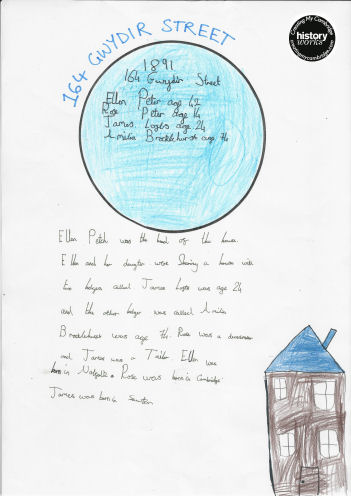 164 GWYDIR STREET
Creating My Cambridge
history
works
creatingmycambridge.com
1891
164 Gwydir Street
Ellen Peter age 42
Rose Peter age 14
James Loses age 24
Amelia Brocklehurst age 74
Ellen Petch was the head of the house.
Ellen and her daughter were Sharing a house with
two lodgers called James was age 24
and the other lodger was called Amelia
Brocklehurst was age 74. Rose was a dressmaker
and James was a Tailor. Ellen was
born in Rose was born in Cambridge
James was born in